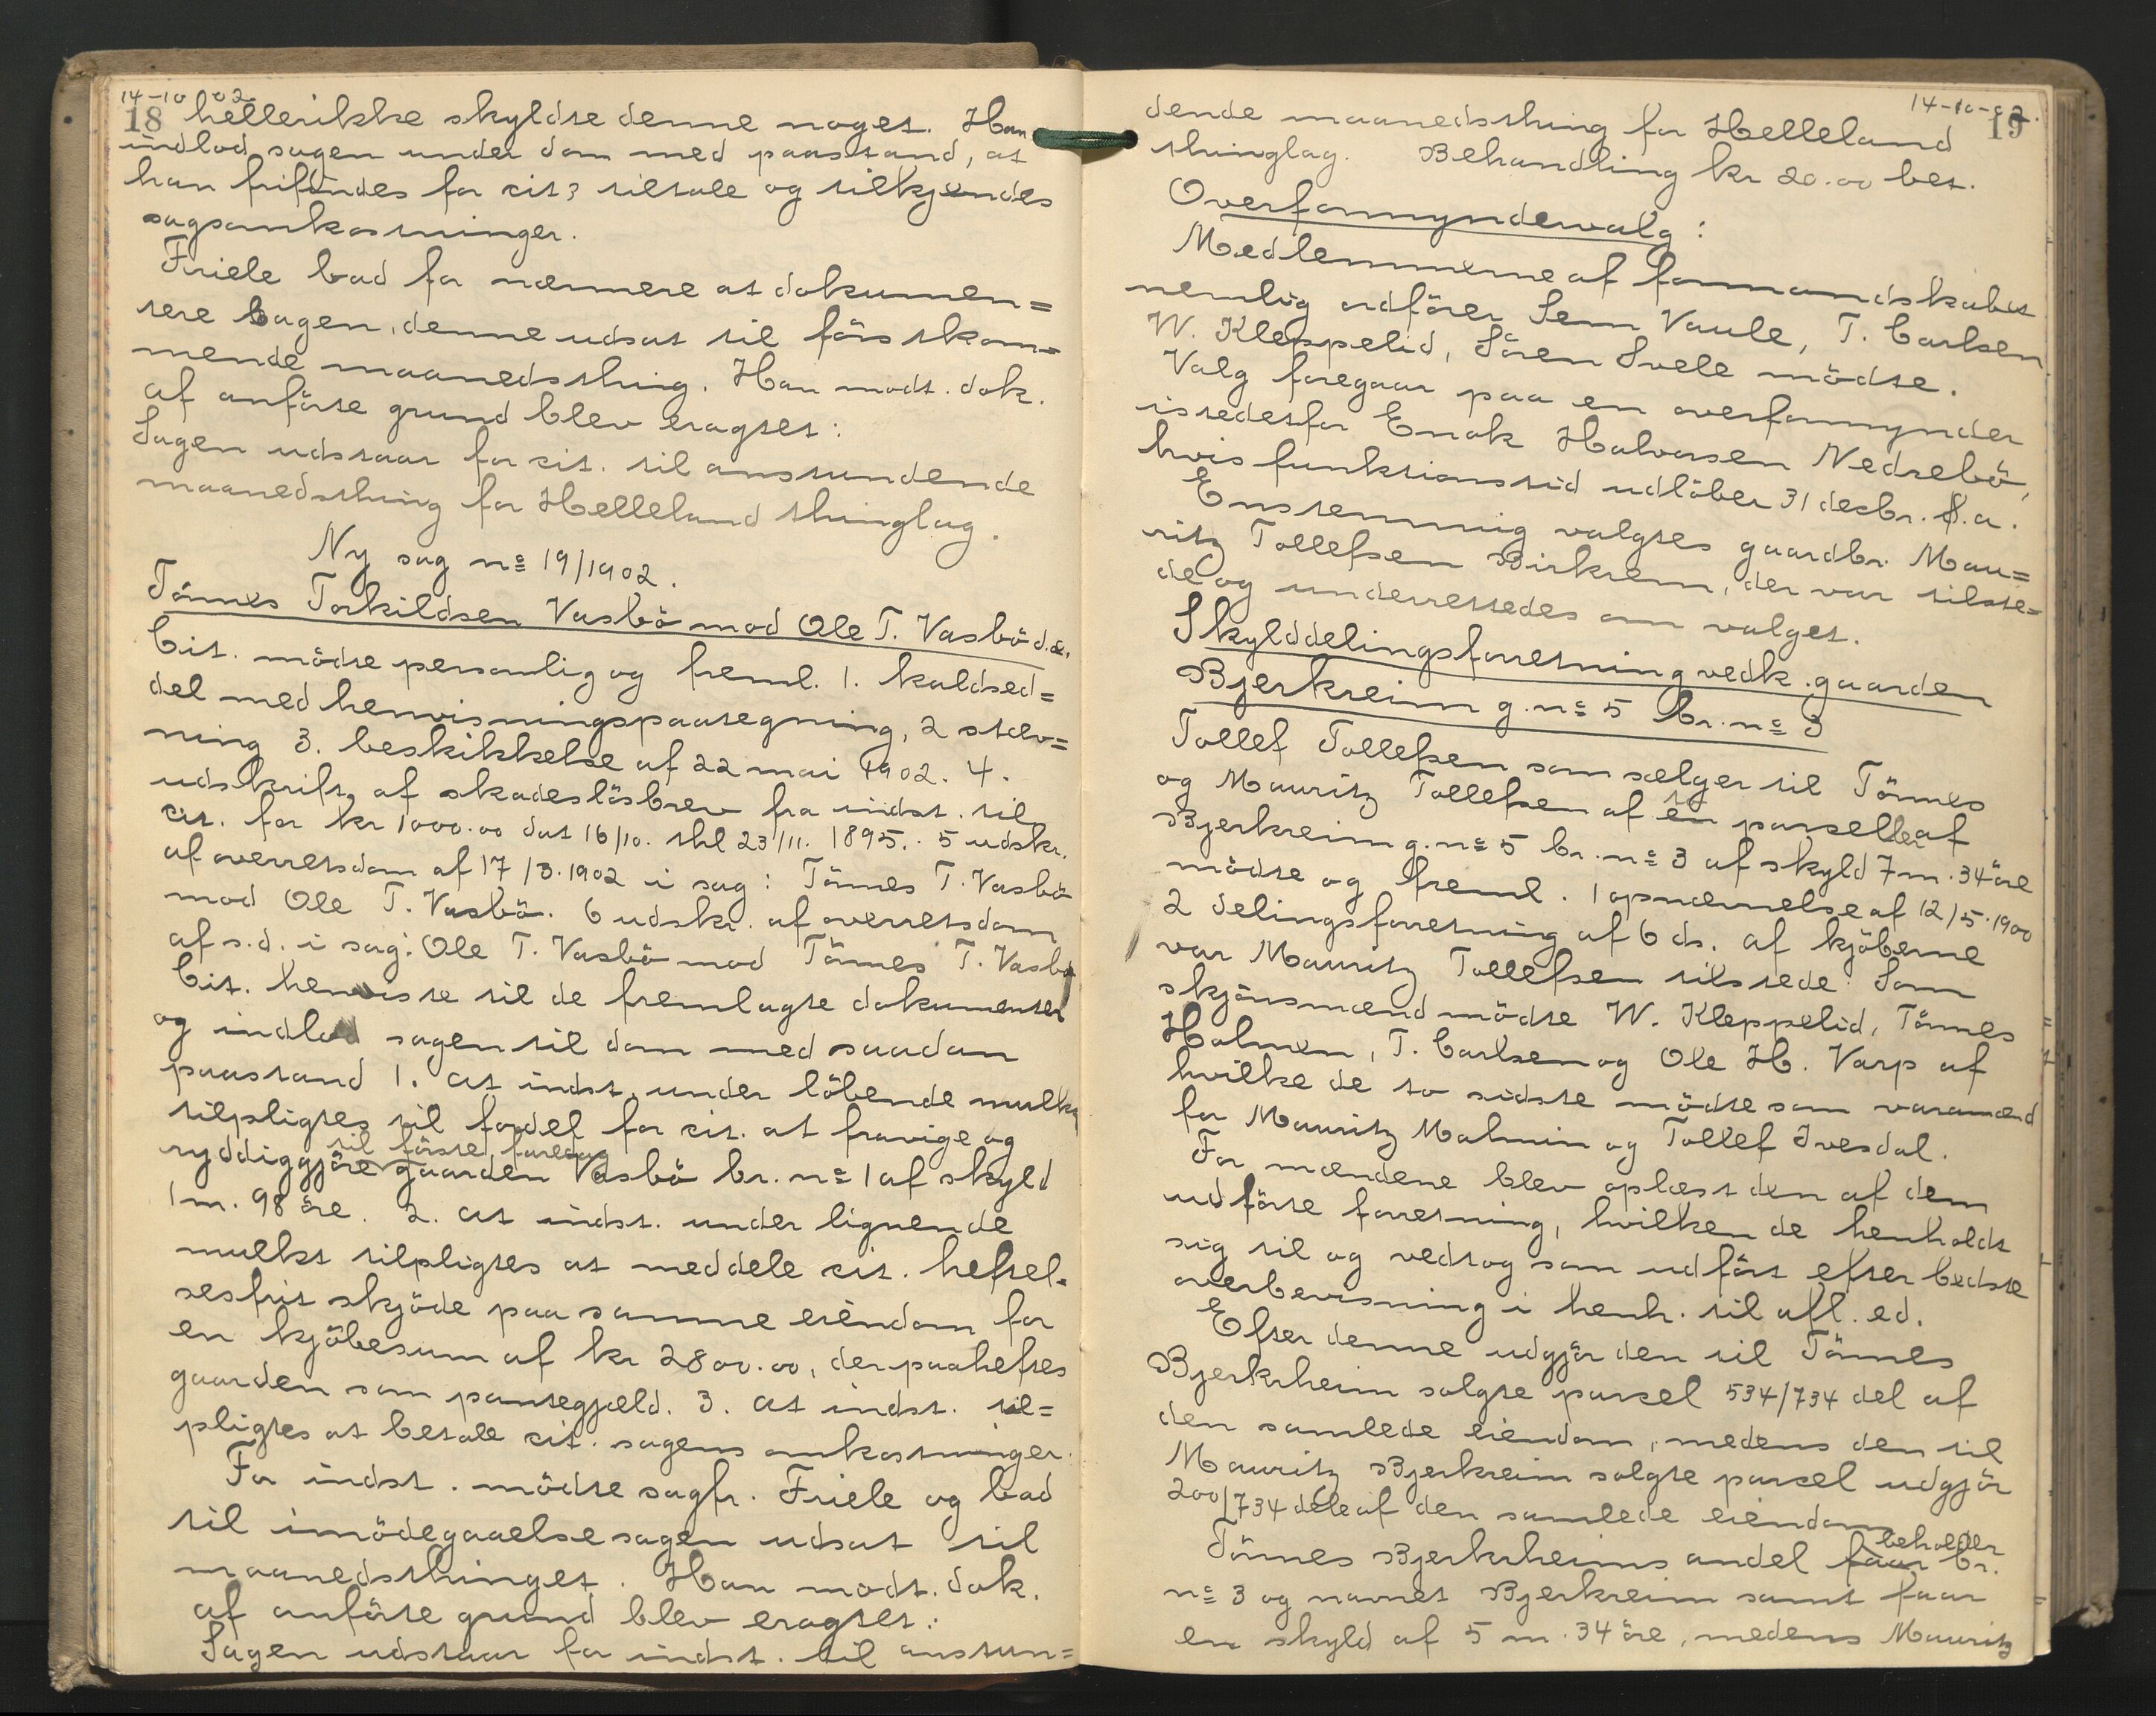 14-10 02.
18 hellerikke skyldte denne noget. Han
indlod sagen under dom med paastand, at
han frifindes for cit.s tiltale og tilkjendes
sagsomkostninger.
Friele bad for nærmere at dokumen=
tere sagen, denne udsat til förstkom=
mende maanedsthing. Han modt. dok.
af anförte grund blev eragtet:
Sagen udstaar for cit. til anstundende
maanedsthing for Helleland thinglag.
Ny sag nº 19/1902.
Tönnes Torkildsen Vasbö mod Ole T. Vasbö d.æ.
Cit. mödte personlig og freml. 1. kaldsed=
del med henvisningspaategning, 2 stæv=
ning 3. beskikkelse af 22 mai 1902. 4.
udskrift af skadeslösbrev fra indst. til
cit. for kr 1000.00 dat 16/10. thl 23/11. 1895. 5 udskr.
af overretsdom af 17/3.1902 i sag: Tönnes T. Vasbö
mod Ole T. Vasbö. 6 udskr. af overretsdom
af s.d. i sag: Ole T. Vasbö mod Tönnes T. Vasbö
Cit. henviste til de fremlagte dokumenter
og indlod sagen til dom med saadan
paastand 1. at indst. under löbende mulkt
tilpligtes til fordel for cit. at fravige og
til förste faredag
ryddiggjöre gaarden Vasbö br. nº 1 af skyld
1 m. 98 öre. 2. at indst. under lignende
mulkt tilpligtes at meddele cit. heftel-
sesfrit skjöde paa samme eiendom for
en kjöbesum af kr 2800.00, der paaheftes
gaarden som pantegjæld. 3. at indst. til=
pligtes at betale cit. sagens omkostninger.
For indst. mödte sagfr. Friele og bad
til imödegaaelse sagen udsat til
maanedsthinget. Han modt. dok.
af anförte grund blev eragtet:
Sagen udstaar for indst. til anstun=
14-10-02.
19
dende maanedsthing for Helleland
thinglag. Behandling kr 20.00 bet.
Overformyndervalg:
Medlemmerne af formandskabet
nemlig ordförer Sem Vaule, T. Carlsen
W. Kleppelid, Sören Svele mödte.
Valg foregaar paa en overformynder
istedetfor Enok Halvorsen Nedrebö,
hvis funktionstid udlöber 31 decbr. d.a.
Enstemmig valgtes gaardbr. Mau=
ritz Tollefsen Birkrem, der var tilste=
de og underrettedes om valget.
Skylddelingsforretning vedk. gaarden
Bjerkreim g.nº 5 br.nº 3
Tollef Tollefsen som sælger til Tönnes
og Mauritz Tollefsen af en to parseller af
Bjerkreim g.nº 5 br.nº 3 af skyld 7 m. 34 öre
mödte og freml. 1 opnævnelse af 12/5.1900
2 delingsforretning af 6 ds. af kjöberne
var Mauritz Tollefsen tilstede. Som
skjönsmænd mödte W. Kleppelid, Tönnes
Holmen, T. Carlsen og Ole H. Varp af
hvilke de to sidste mödte som varamænd
for Mauritz Malmin og Tollef Ivesdal.
For mændene blev oplæst den af dem
udförte forretning, hvilken de henholdt
sig til og vedtog som udfört efter bedste
overbevisning i henh. til afl. ed.
Efter denne udgjör den til Tönnes
Bjerkrheim solgte parcel 534/734 del af
den samlede eiendom, medens den til
Mauritz Bjerkreim solgte parcel udgjör
200/734 dele af den samlede eiendom
beholder
Tönnes Bjerkrheims andel faar br.
nº 3 og navnet Bjerkreim samt faar
en skyld af 5 m. 34 öre, medens Mauritz